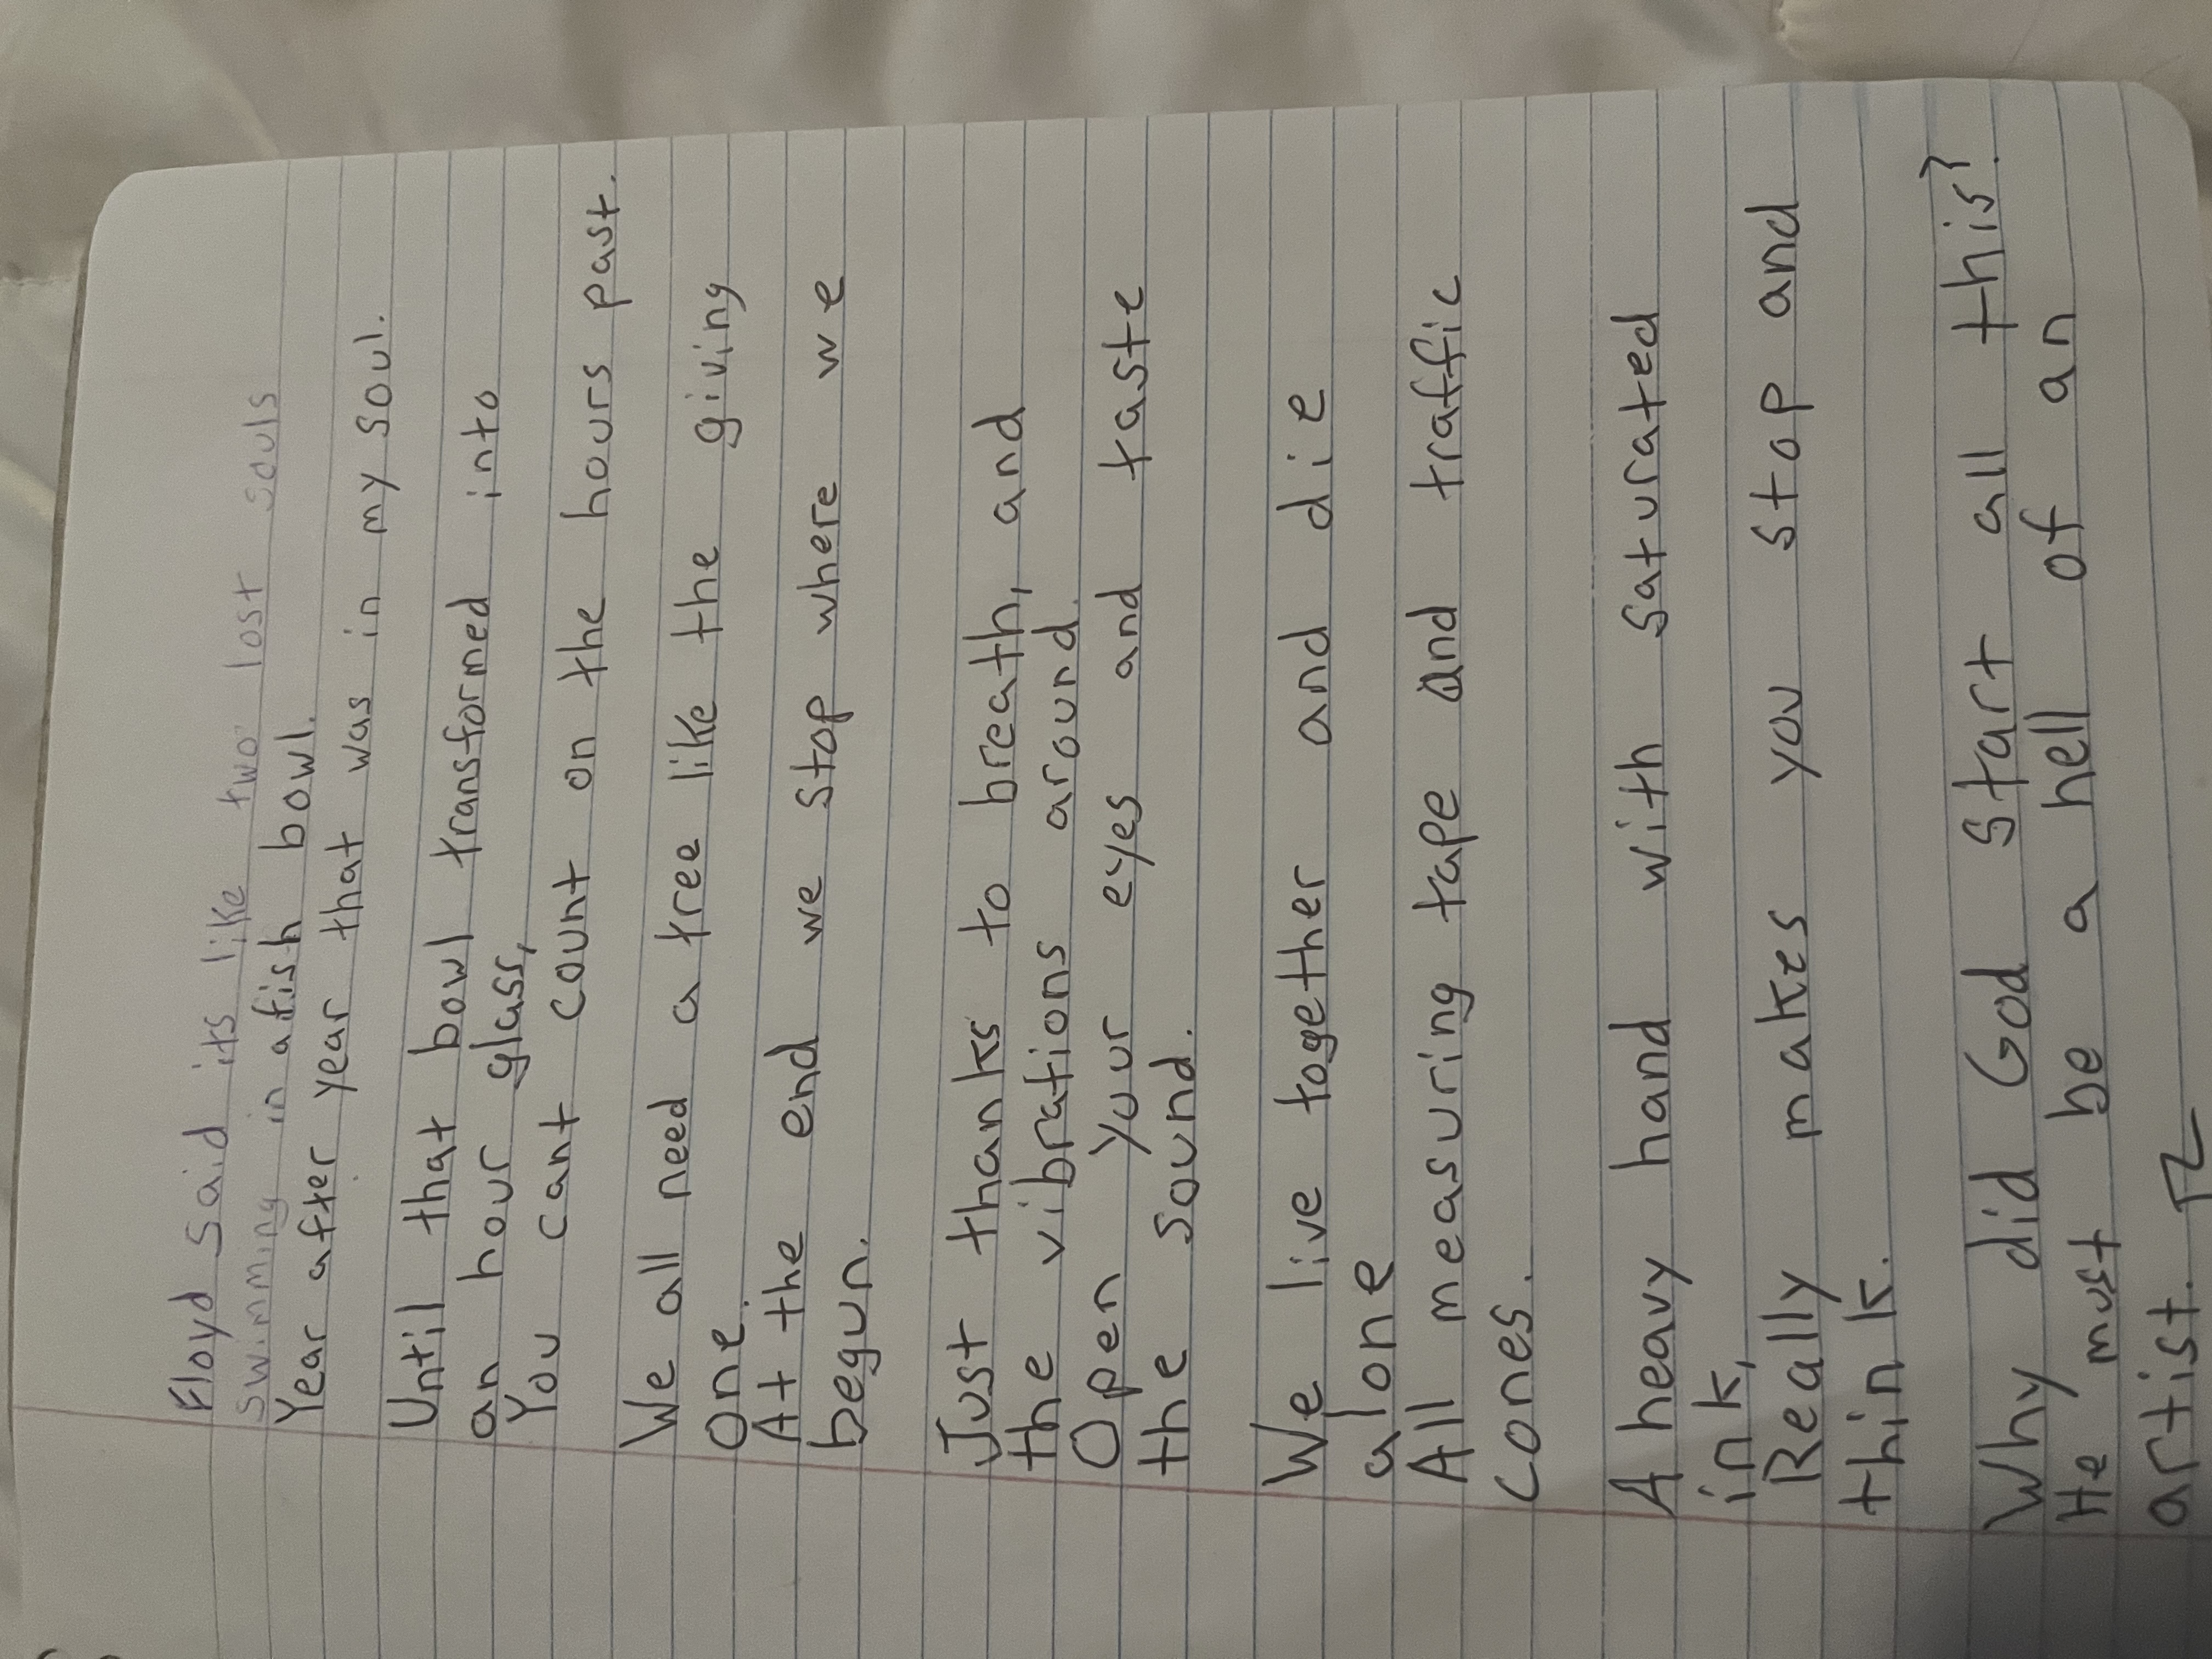 Floyd said its like two lost souls
swimming in a fish bowl.
Year after year that was in my soul.
Until that bowl transformed into
an hour glass,
You cant count on the hours past.
We all need a tree like the giving
one.
At the end we stop where we
begun.
Just thanks to breath, and
the vibrations around.
Open your eyes and taste
the sound.
We live together and die
alone
All measuring tape and traffic
cones.
A heavy hand with saturated
ink,
Really makes you stop and
think.
Why did God start all this?
He must be a hell of an
artist.